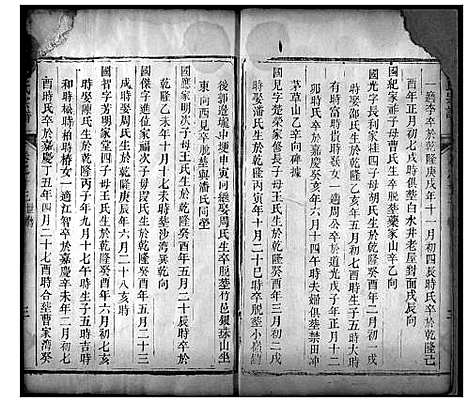 一適李氏卒於乾隆庚戌年十一月初四長時氏卒於乾隆己
酉年水月初七戌時俱葬白水井老屋對面戌辰向
國紀家祚子母曹氏生卒脫葬藥家山辛乙向
國光字長利家柱四子母胡氏生於乾隆癸酉年二月初一戌
時娶鄧氏生於乾隆乙亥年五月初七酉時生子四時
有時富時貴時發女一適周公卒於道光戊子年正月十二
卯時氏卒於嘉慶癸亥年六月十四午時夫婦俱葬禁田冲
茅草山乙辛向碑據
國見字楚榮家修長子母胡氏生於乾隆癸酉年三月初三戌
時娶潘氏生於乾隆丙寅年十月二十巳時卒脫葬小
後郭邊壠申埂申寅向繼娶周氏生卒脫葬竹邑銀珠山坐
東向西見卒脫葬與潘氏同塋
國應家明次子母王氏生於乾隆癸酉年五月二十辰時卒於
乾隆乙未年十月十七時卒脫葬沙灣巽乾向
國傑子進位家福次子母易氏生於乾隆癸酉年五月二十三
戌時娶周氏生於乾隆庚辰年六月二十八亥時
國智字芳明家堂四子母王氏生於乾隆癸酉年六月初七亥
時娶陳氏生於乾隆丙子年九月十七午時生子五時吉時
和時松時柏時椿女一適江智卒於嘉慶辛未年二月初七
酉時氏卒於嘉慶丁丑年四月二十七酉時合葬曹家灣癸